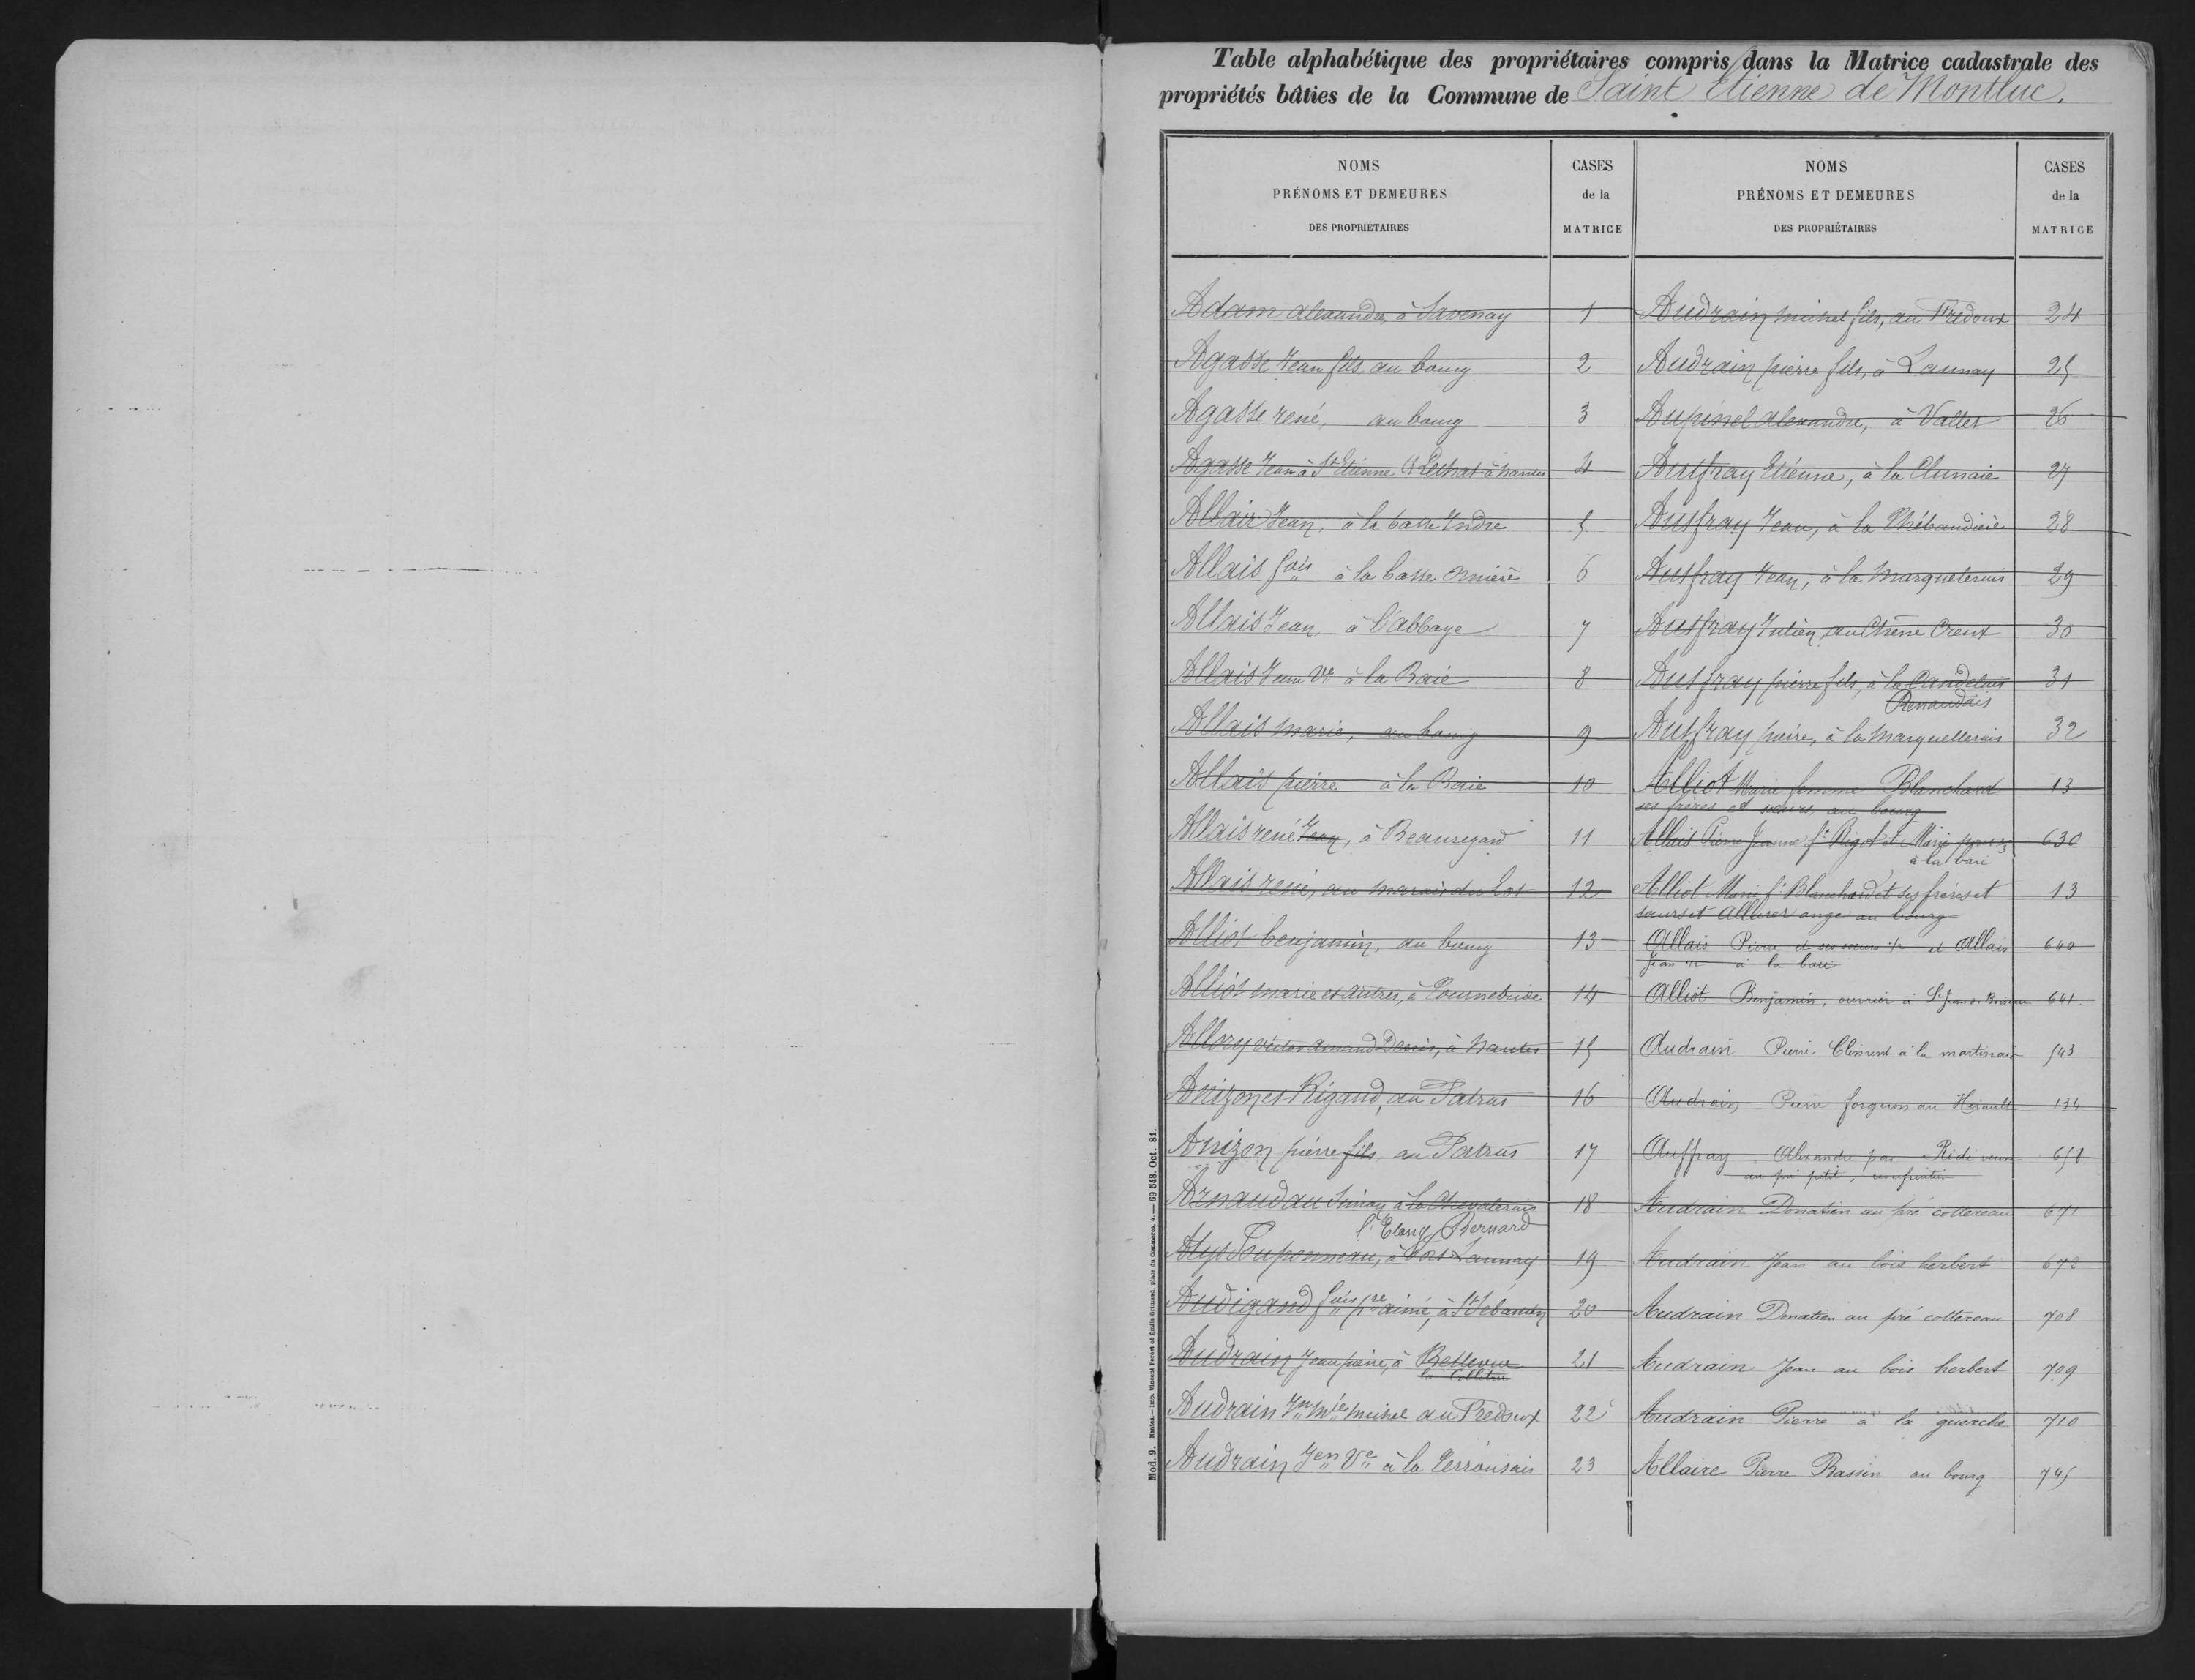 Table alphabétique des propriétaires compris dans la Matrice cadastrale des
propriétés bâties de la Commune de Saint Etienne de Montluc.
NOMS
PRÉNOMS ET DEMEURES
DES PROPRIÉTAIRES
CASES
de la
MATRICE
NOMS
PRÉNOMS ET DEMEURES
DES PROPRIÉTAIRES
CASES
de la
MATRICE
Adam alexandre, à Savenay 1
Agasse Jean fils, au bourg 2
Agasse rené, au bourg 3
Agasse Jean à St Etienne & Lechat à nantes 4
Allair Jean, à la basse Indre 5
Allais fois à la basse ornière 6
Allais Jean, à l'abbaye 7
Allais Jean Ve à la Baie 8
Allais marie, au bourg 9
Allais pierre à la Baie 10
Allais rené Jean, à Beauregard 11
Allais rené, au marais du Lot 12
Alliot benjamin, au bourg 13
Alliot marie et autres, à Tournebride 14
Allory victor amand Denis, à Nantes 15
Anizon et Rigaud, au Patrus 16
Anizon pierre fils au Patrus 17
Arnaudau Simon à la Chevalerais 18
l'Etang Bernard
Atys Pouponneau, à Port Launay 19
Audigand fois pre aimé, à St Sébastien 20
Audrain Jean pierre, à Bellevue 21
la Colletrie
Audrain Jn Mie michel au Predoux 22
Audrain Jen Ve à la Terrousais 23
Audrain michel fils, au Predoux 24
Audrain pierre fils, à Launay 25
Aupinel alexandre, à Vallet 26
Auffray Etienne, à la Clunaie 27
Auffray Jean, à la Thébaudière 28
Auffray Jean, à la Marquelerais 29
Auffray Julien, au Chêne Creux 30
Auffray pierre fils, à la 31
Renaudais
Auffray pierre, à la Marquellerais 32
Alliot Marie femme Blanchard 13
ses frères et soeurs au bourg
Allais Pierre Jeanne fe Rigot et Marie 630
à la baie
Alliot Marie fe Blanchard et ses frères et 13
soeurs et ange au bourg
Allais Pierre et ses soeurs 1/2 et Allais 640
Jean 1/2 à la baie
Alliot Benjamin, ouvrier à St Jean de Boiseau 641
Audrain Pierre Clément à la martinais 543
Audrain Pierre forgeron au Hérault 134
Auffray Alexandre par 658
au pré petit, usufruitier
Audrain Donatien au pré cottereau 671
Audrain Jean au bois herbert 672
Audrain Donatien au pré cottereau 708
Audrain Jean au bois herbert 709
Audrain Pierre à la guerche 710
Allaire Pierre Bassin au bourg 745
Mod. 9. Nantes.— Imp. Vincent Forest et Émile Grimaud, place du Commerce, 4. — 69 548. Oct. 81.